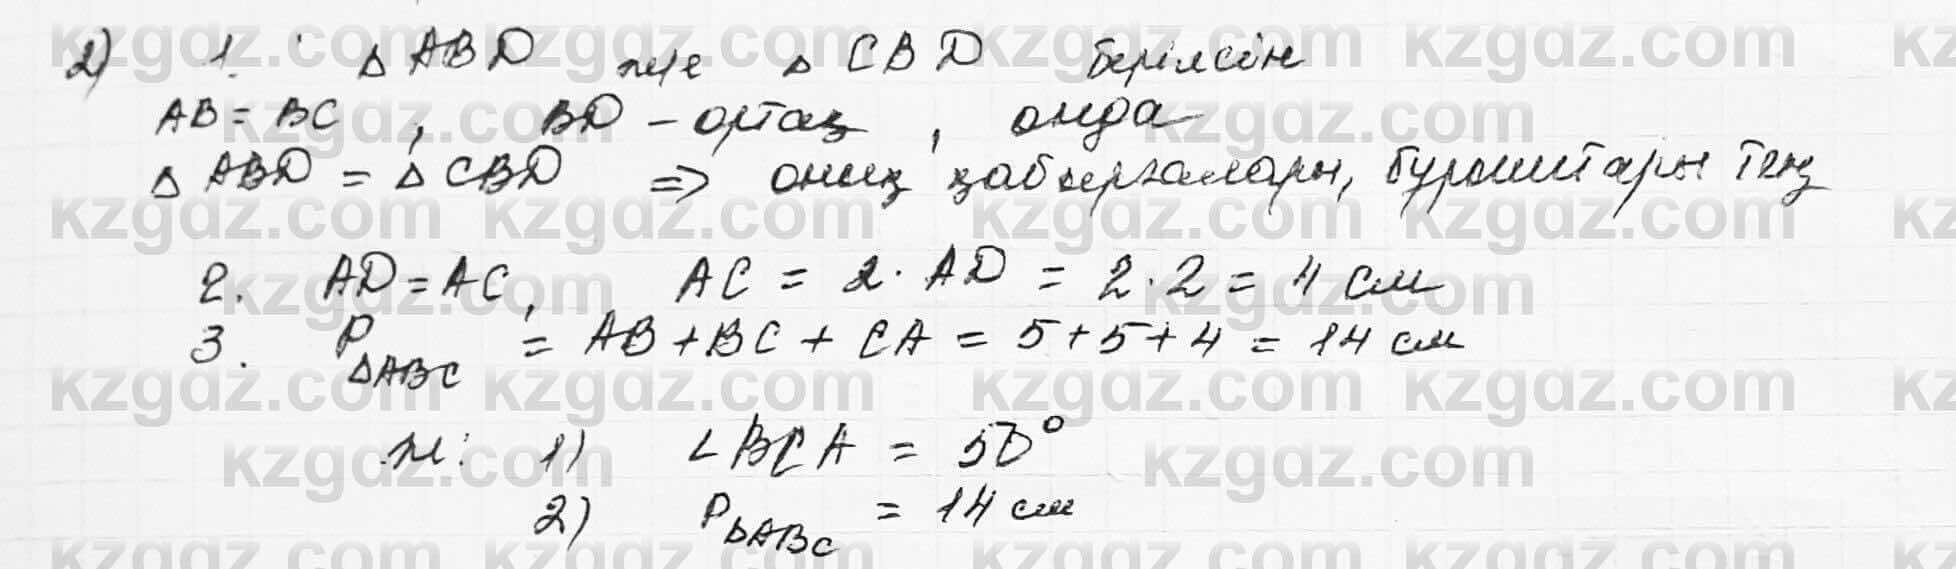 2) 1. Δ ABD және Δ CBD берілсін
AB = BC, BD – ортақ, онда
Δ ABD = Δ CBD => оның қабырғалары, бұрыштары тең
2. AD = AC, AC = 2 · AD = 2 · 2 = 4 см
3. P ΔABC = AB + BC + CA = 5 + 5 + 4 = 14 см
Ж: 1) ∠BCA = 50°
2) P ΔABC = 14 см